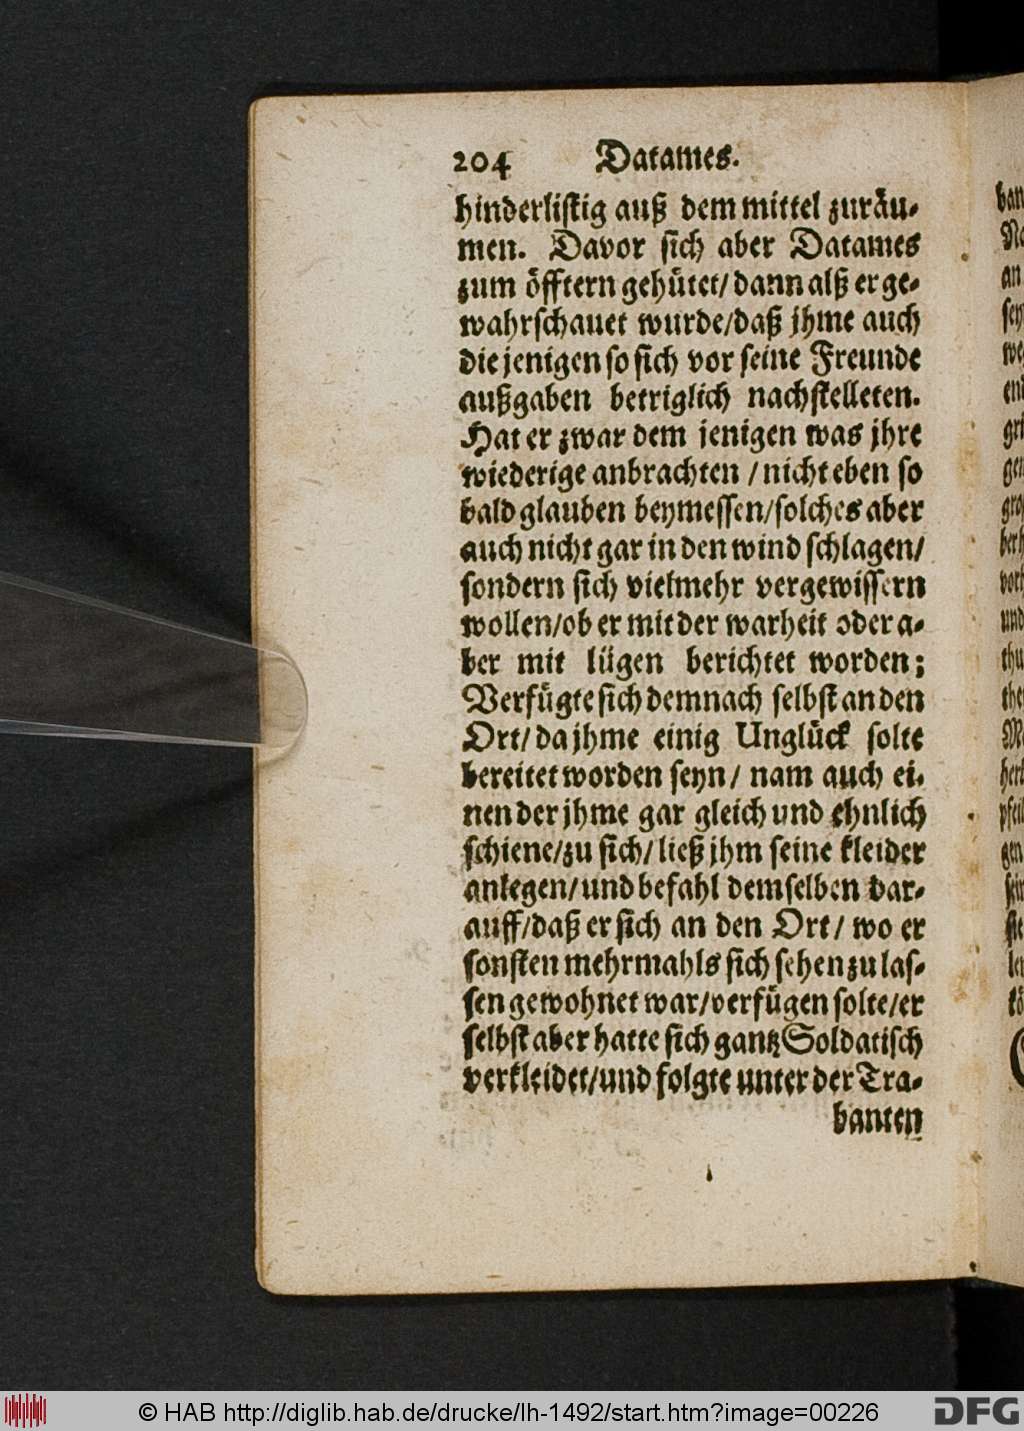 204 Datames.
hinderlistig auß dem mittel zuräu-
men. Davor sich aber Datames
zum öfftern gehütet/ dann alß er ge-
wahrschauet wurde/daß jhme auch
die jenigen so sich vor seine Freunde
außgaben betriglich nachstelleten.
Hat er zwar dem jenigen was jhre
wiederige anbrachten / nicht eben so
bald glauben beymessen/solches aber
auch nicht gar in den wind schlagen/
sondern sich vielmehr vergewissern
wollen/ob er mit der warheit oder a-
ber mit lügen berichtet worden;
Verfügte sich demnach selbst an den
Ort/ da jhme einig Unglück solte
bereitet worden seyn/ nam auch ei-
nen der jhme gar gleich und ehnlich
schiene/zu sich/ ließ jhm seine kleider
anlegen/ und befahl demselben dar-
auff/daß er sich an den Ort/ wo er
sonsten mehrmahls sich sehen zu las-
sen gewohnet war/verfügen solte/er
selbst aber hatte sich gantz Soldatisch
verkleidet/und folgte unter der Tra-
banten
© HAB http://diglib.hab.de/drucke/lh-1492/start.htm?image=00226
DFG